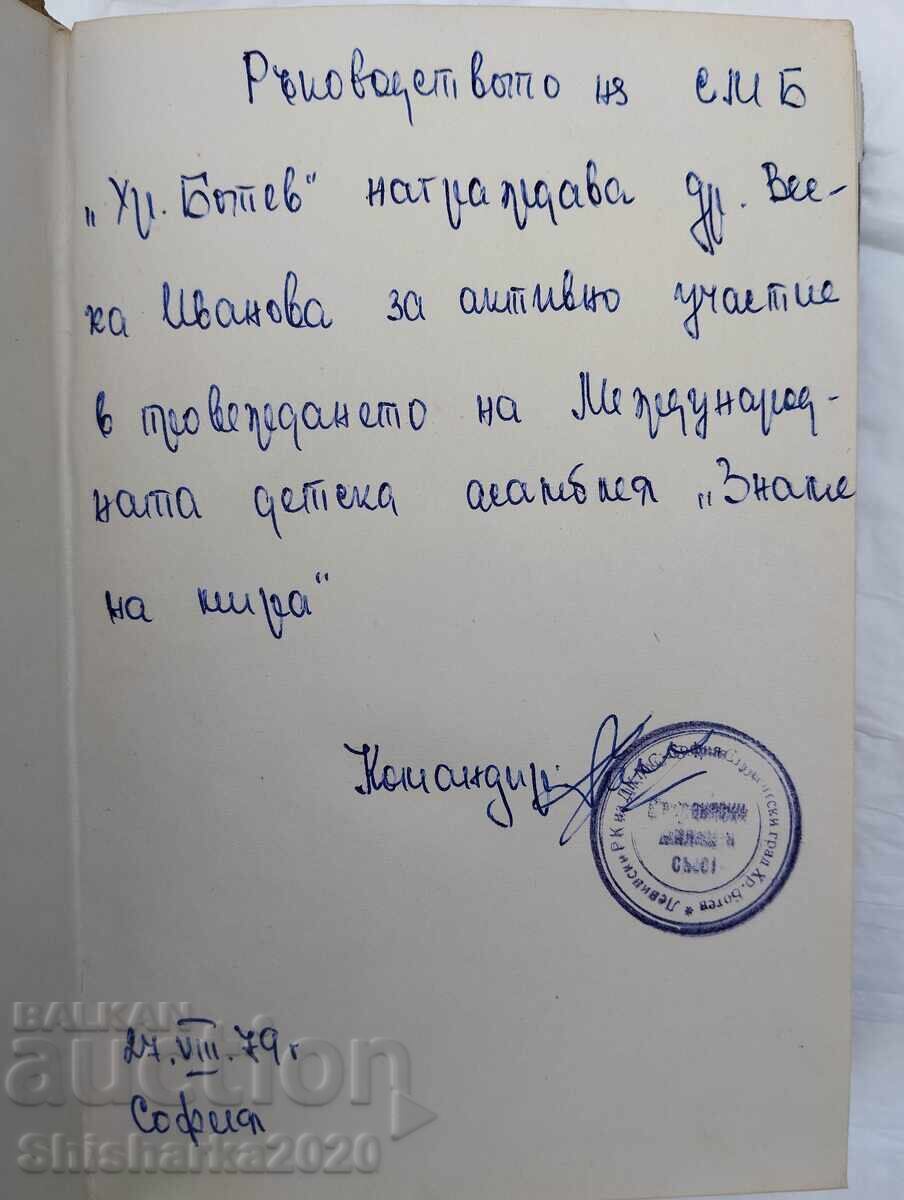 Ръководството на СМБ
„Хр. Ботев" награждава др. Вес-
ка Иванова за активно участие
в провеждането на Международ-
ната детска асамблея „Знаме
на мира"
Командир:
Левински РК на ДКМС София Студентски град Хр. Ботев *
27.VIII.79 г
София
BALKAN
auction
Shisharka2020